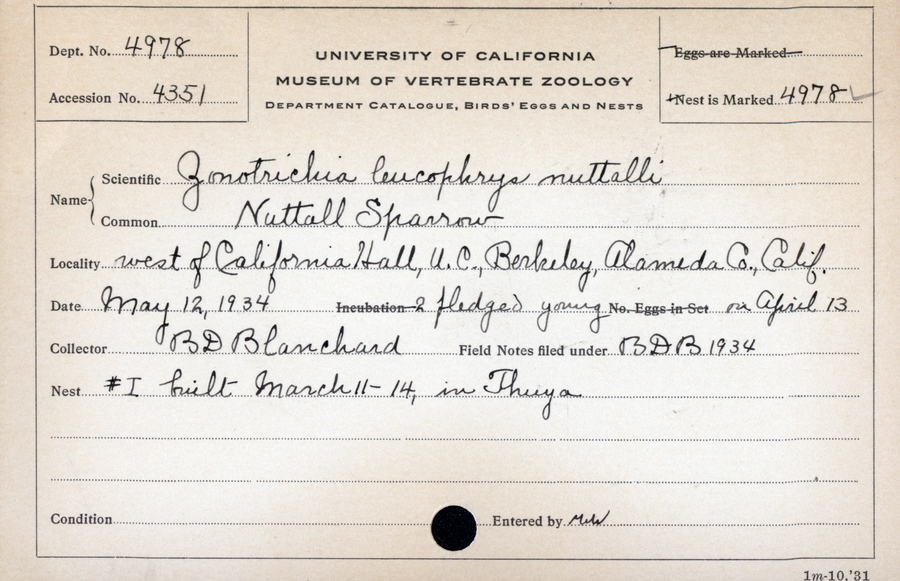 Dept. No. 4978
Accession No. 4351
UNIVERSITY OF CALIFORNIA
MUSEUM OF VERTEBRATE ZOOLOGY
DEPARTMENT CATALOGUE, BIRDS' EGGS AND NESTS
Eggs are Marked
Nest is Marked 4978
Name
Scientific Zonotrichia leucophrys nuttalli
Common Nuttall Sparrow
Locality west of California Hall, U.C., Berkeley, Alameda Co., Calif.
Date May 12, 1934 Incubation 2 fledged young No. Eggs in Set on April 13
Collector BD Blanchard Field Notes filed under BDB 1934
Nest #1 built March 11-14, in Thuya
Condition Entered by
1m-10,'31